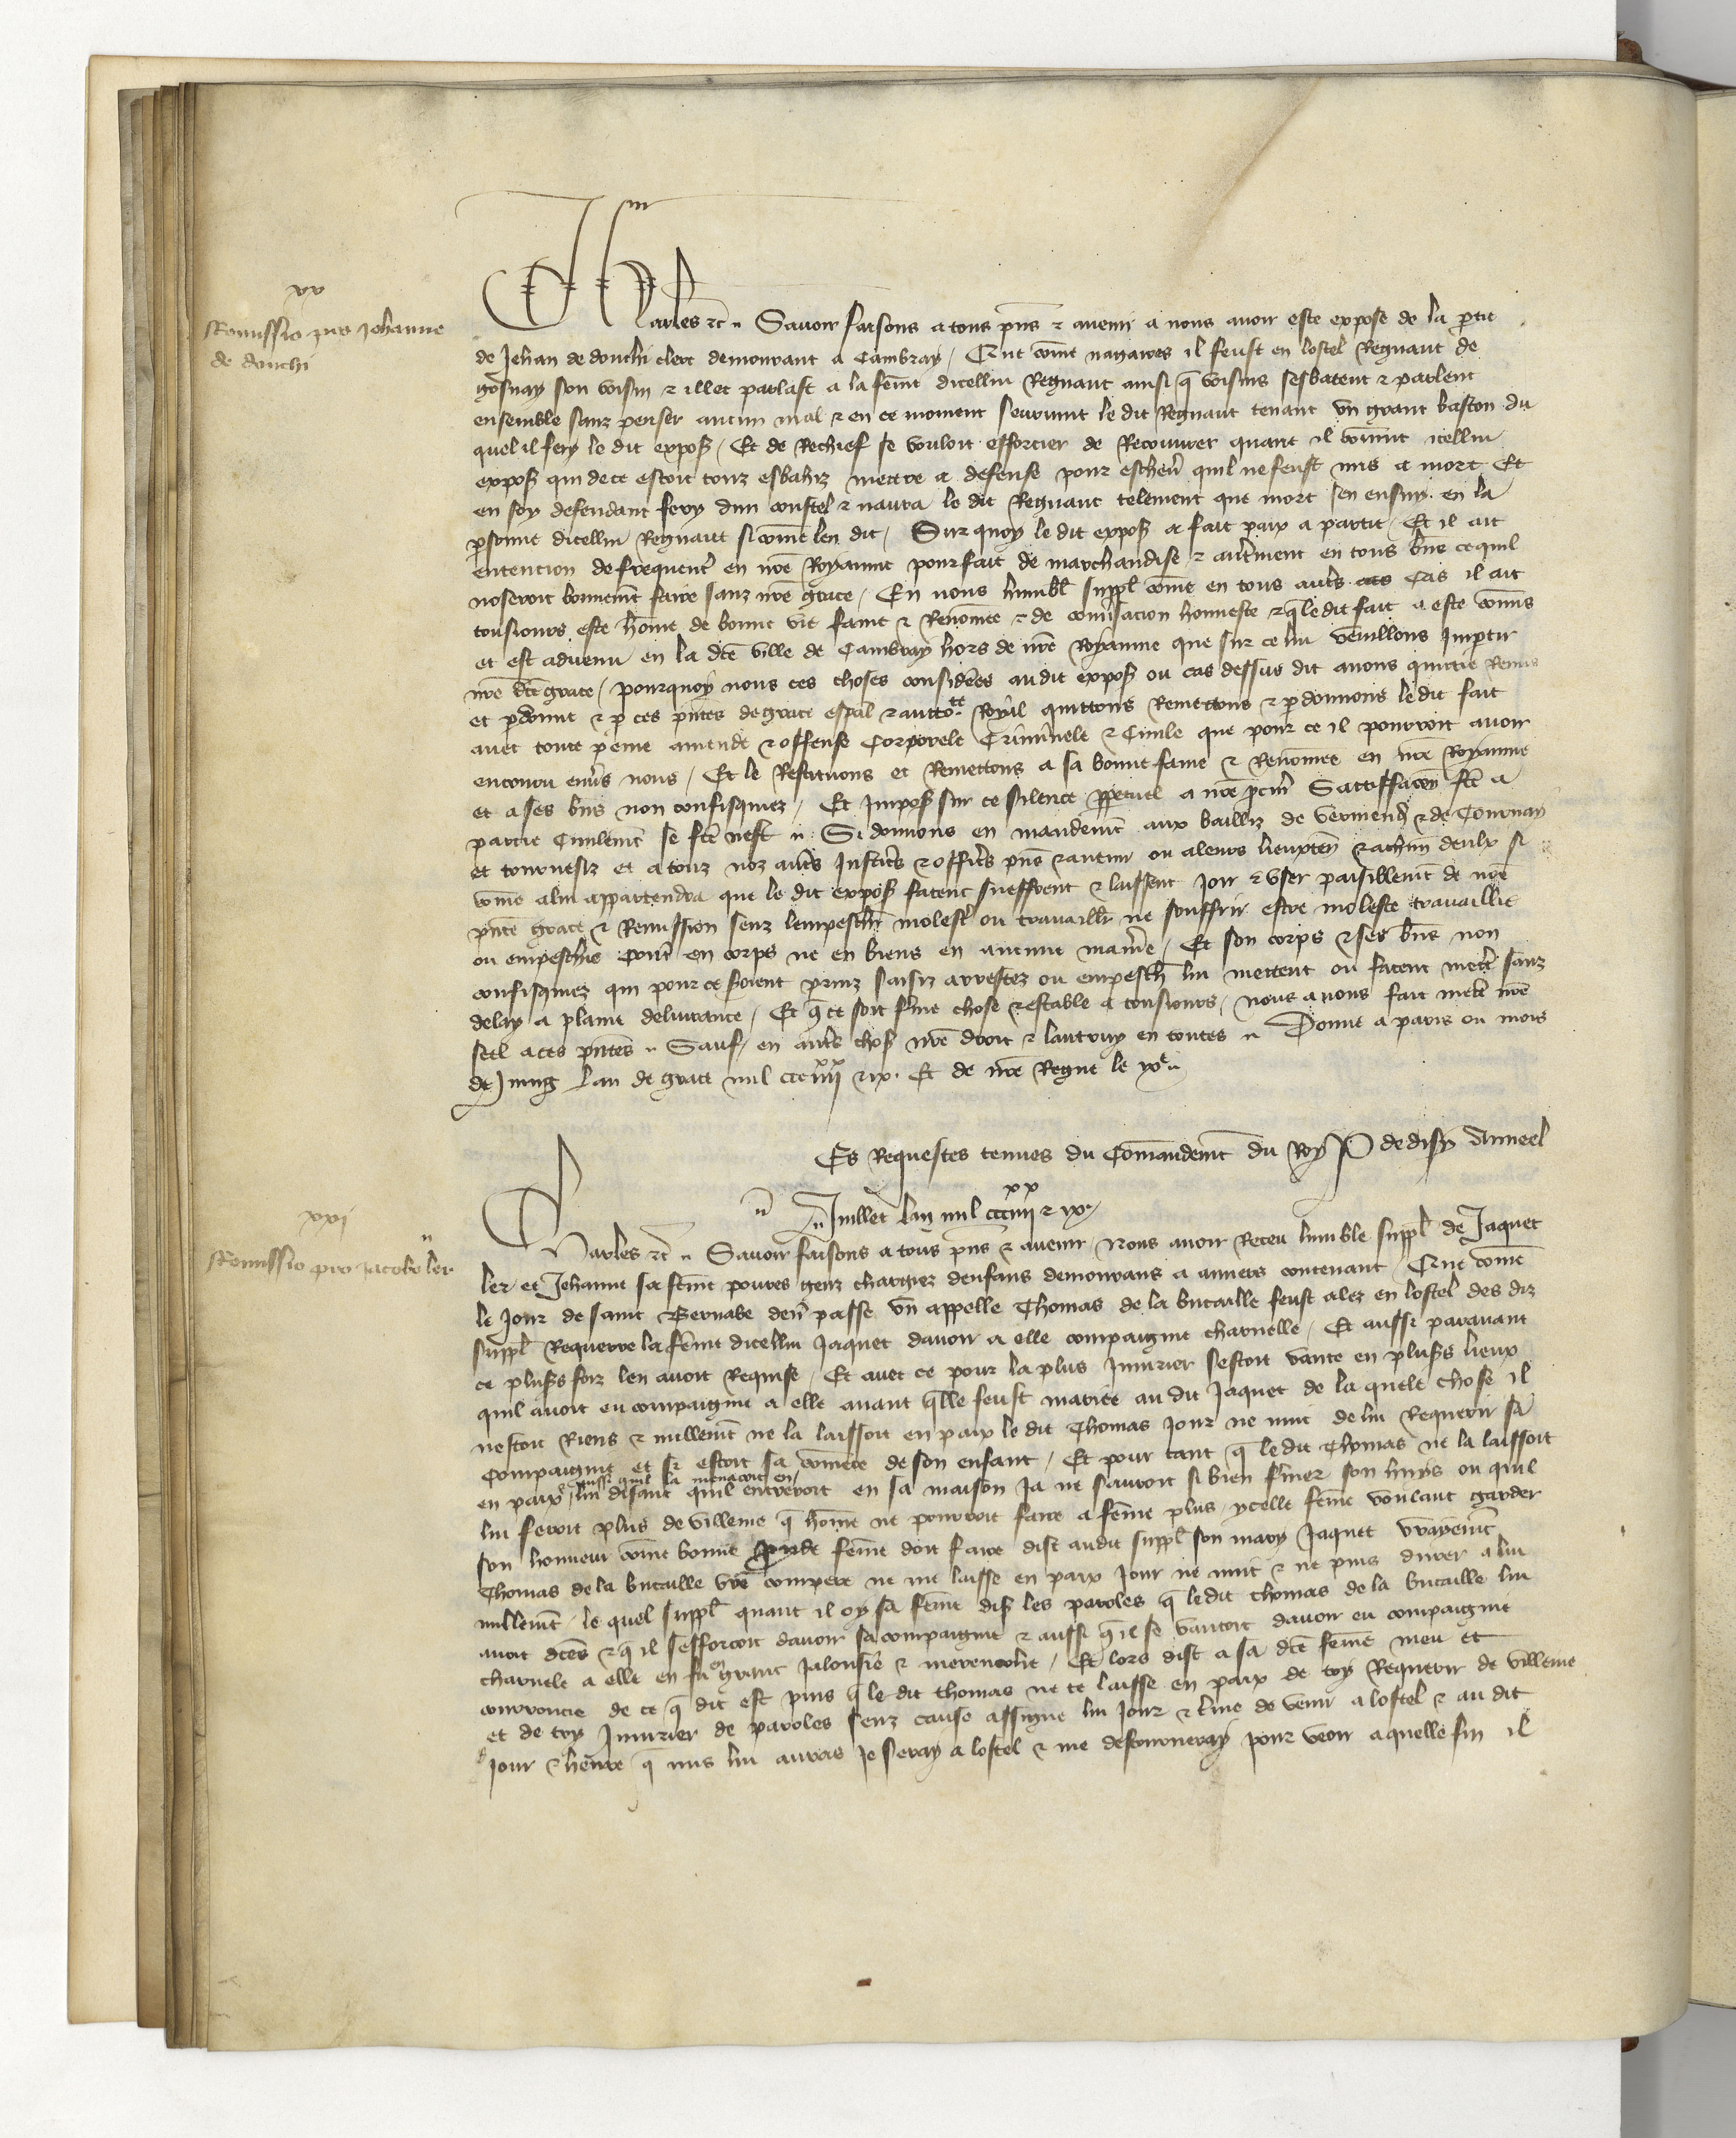 xx
Remissio pro Johanne
de douchi
Charles etc. Savoir faisons a tous pñs ⁊ avenir a nous avoir este expose de la partie
de Jehan de douchi clerc demourant a Cambray / Que com̃e nagaires il feust en lostel Regnaut de
gosnay son voisin ⁊ illec parlast a la fem̃e dicellui Regnaut ainsi q̃ voisins sesbatent ⁊ parlent
ensemble sanz penser aucun mal ⁊ en ce moment seurvint le dit Regnaut tenant un grant baston du
quel il fery le dit expoš / Et de Rechief se vouloit efforcier de Recouvrer quant il convint icellui
expoš qui de ce estoit touz esbahiz mettre a defense pour eschever quil ne feust mis a mort Et
en soy defendant fery dun coustel ⁊ navra le dit Regnaut telement que mort sen ensuy en la
ꝑsonne dicellui Regnaut si com̃e len dit / Sur quoy le dit expoš a fait paix a partie / Et il ait
entencion de frequent̃ en nr̃e Royaume pour fait de marchandise ⁊ autrement en tous bñs ce quil
noseroit bonnem̃t faire sanz nr̃e grace / En nous humblem̃t suppl̃ com̃e en tous autˢ cas il ait
tousiours este hom̃e de bonne vie fame ⁊ Renom̃ee ⁊ de conv̾sacion honneste ⁊ q̃ le dit fait a este com̃is
et est advenu en la dc̃e ville de Cambray hors de nr̃e Royaume que sur ce lui vueillons Impartir
nr̃e dc̃e grace / pourquoy nous ces choses considerees au dit expoš ou cas dessus dit avons quittie Remis
et ꝑdonne ⁊ ꝑ ces pñtes de grace esp̃al ⁊ auctoᵗᵉ Royal quittons Remettons ⁊ ꝑdonnons le dit fait
avec toute peine amende ⁊ offense Corporele Criminele ⁊ Civile que pour ce il pourroit avoir
encouru env̾s nous / Et le Restituons et Remettons a sa bonne fame ⁊ Renom̃ee en nr̃e Royaume
et a ses bñs non confisquiez / Et Impoš sur ce silence ꝑpetuel a nr̃e ꝓcur̃ Satiffacc̃on fc̃e a
partie Civilem̃t se fc̃e nest ·· Si donnons en mandem̃t aux bailliz de Vermend̃ ⁊ de Tournay
et tournesiz et a touz noz autˢ Justicˢ ⁊ officˢ pñs ⁊ avenir ou a leurs lieuxteñ ⁊ a chũn deulx si
com̃e a lui appartendra que le dit expoš facent sueffrent ⁊ laissent joir ⁊ user paisiblem̃t de nr̃e
pñte grace ⁊ Remission senz lempesch̃ molest̃ ou travaill̃r ne souffrir estre moleste travaillie
ou empeschie cont̃ en corps ne en biens en aucune manie̾ / Et son corps ⁊ ses bñs non
confisquiez qui pour ce seroient prins saisiz arrestez ou empesch̃ lui mettent ou facent mett̃ sanz
delay a plaine delivrance / Et q̃ ce soit ferme chose ⁊ estable a tousiours / nous avons fait mett̃ nr̃e
seel a ces pñtes ·· Sauf en autˢ choš nr̃e droit ⁊ lautruy en toutes ·· Donne a paris ou mois
de Juing Lan de grace mil cccͨiiiiˣˣ ⁊ ix. Et de nr̃e Regne le ixᵉ ··
Es Requestes tenues du Com̃andem̃t du Roy P de disy Anneel
Juillet Lan mil cccͨiiiiˣˣ ⁊ ix /
xxi
Remissio pro Jacobo ler
Charles etc. Savoir faisons a tous pñs ⁊ avenir / Nous avoir Receu lumble suppl̃ de Jaquet
ler et Jehanne sa fem̃e povres genz chargiez denfans demourans a contenant / Que com̃e
le jour de saint Bernabe deñ passe un appelle Thomas de la bucaille feust alez en lostel des diz
suppl̃ Requerre la fem̃e dicellui Jaquet davoir a elle compaignie charnelle / Et aussi paravant
ce pluss̃ foiz len avoit Requise / Et avec ce pour la plus Iniurier sestoit vante en pluss̃ lieux
quil avoit eu compaignie a elle avant q̃lle feust mariee au dit Jaquet de la quele chose il
nestoit Riens ⁊ nullem̃t ne la laissoit en paix le dit Thomas jour ne nuit de lui Requerir sa
compaignie et si estoit sa com̃ere de son enfant / Et pour tant q̃ le dit Thomas ne la laissoit
en paix ⁊ aussi quil la menacoit en lui disant quil entreroit en sa maison ja ne sauroit si bien fermer son huys ou quil
lui feroit plus de villenie q̃ hom̃e ne pourroit faire a fem̃e plus / ycelle fem̃e voulant garder
son honneur com̃e bonne preude fem̃e doit faire dist audit suppl̃ son mary Jaquet vrayem̃t
Thomas de la bucaille vr̃e compere ne me laisse en paix jour ne nuit ⁊ ne puis durer a lui
nullem̃t / le quel suppl̃ quant il oy sa fem̃e diš les paroles q̃ le dit Thomas de la bucaille lui
avoit dc̃es ⁊ q̃ il sefforcoit davoir sa compaignie ⁊ aussi q̃ il se vantoit davoir eu compaignie
charnele a elle en fu en grant jalousie ⁊ merencolie / Et lors dist a sa dc̃e fem̃e meu et
courroucie de ce q̃ dit est puis q̃ le dit Thomas ne te laisse en paix de toy Requerir de villenie
et de toy Iniurier de paroles senz cause assigne lui jour ⁊ t̾me de venir a lostel ⁊ au dit
jour ⁊ heure q̃ mis lui auras je seray a lostel ⁊ me destourneray pour veoir a quelle fin il